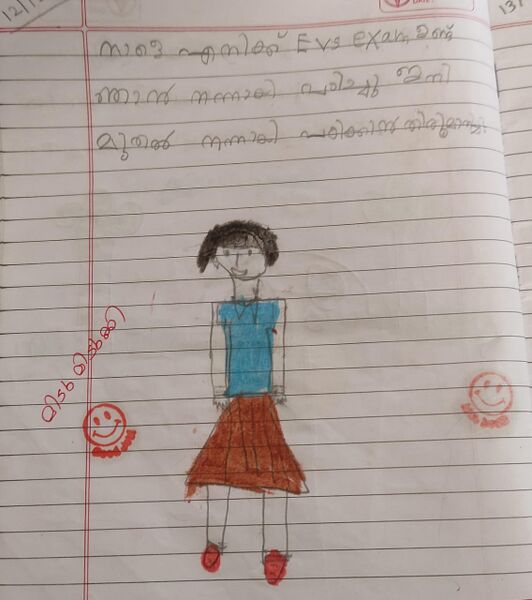 12/1
13/1
DATE:
നാളെ എനിക്ക് Evs exam ഉണ്ട്
ഞാൻ നന്നായി പഠിച്ചു ഇനി
മുതൽ നന്നായി പഠിക്കാൻ തീരുമാനിച്ചു.
മിടുക്കി